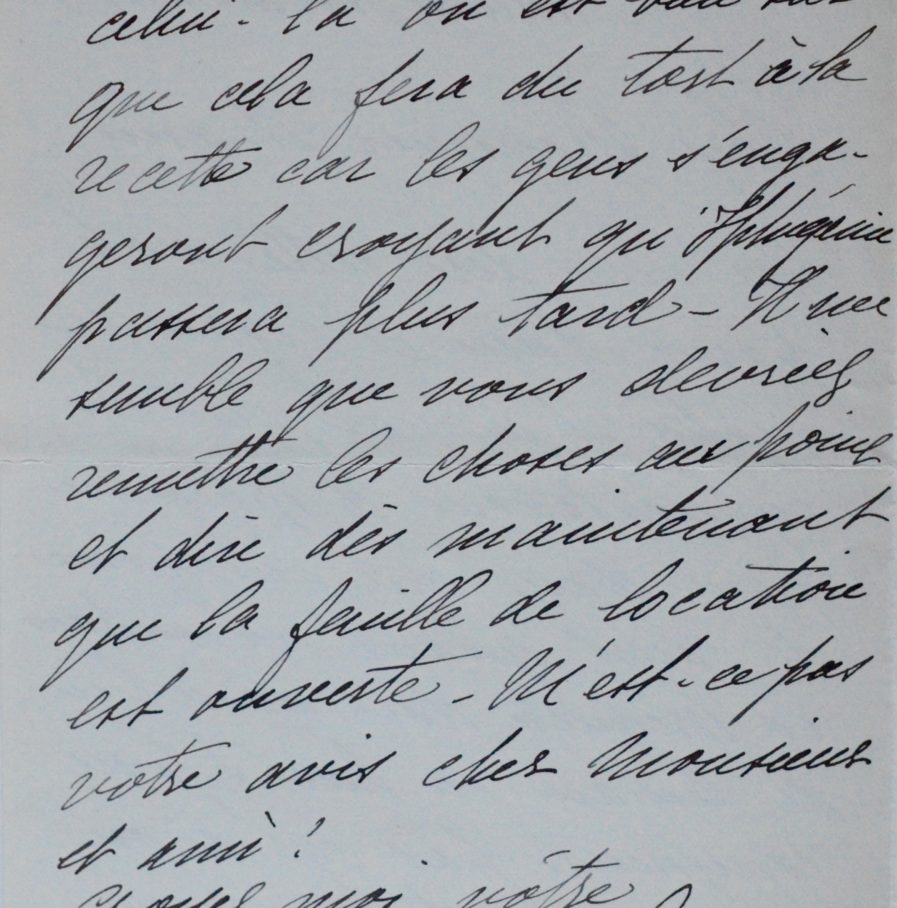 celui-là on est
que cela fera du tort à la
recette car les gens s'enga-
geront croyant qu'Iphigénie
passera plus tard - Il me
semble que vous devriez
remettre les choses au point
et dire dès maintenant
que la feuille de location
est ouverte - N'est-ce pas
votre avis cher Monsieur
et ami?
croyez moi vôtre